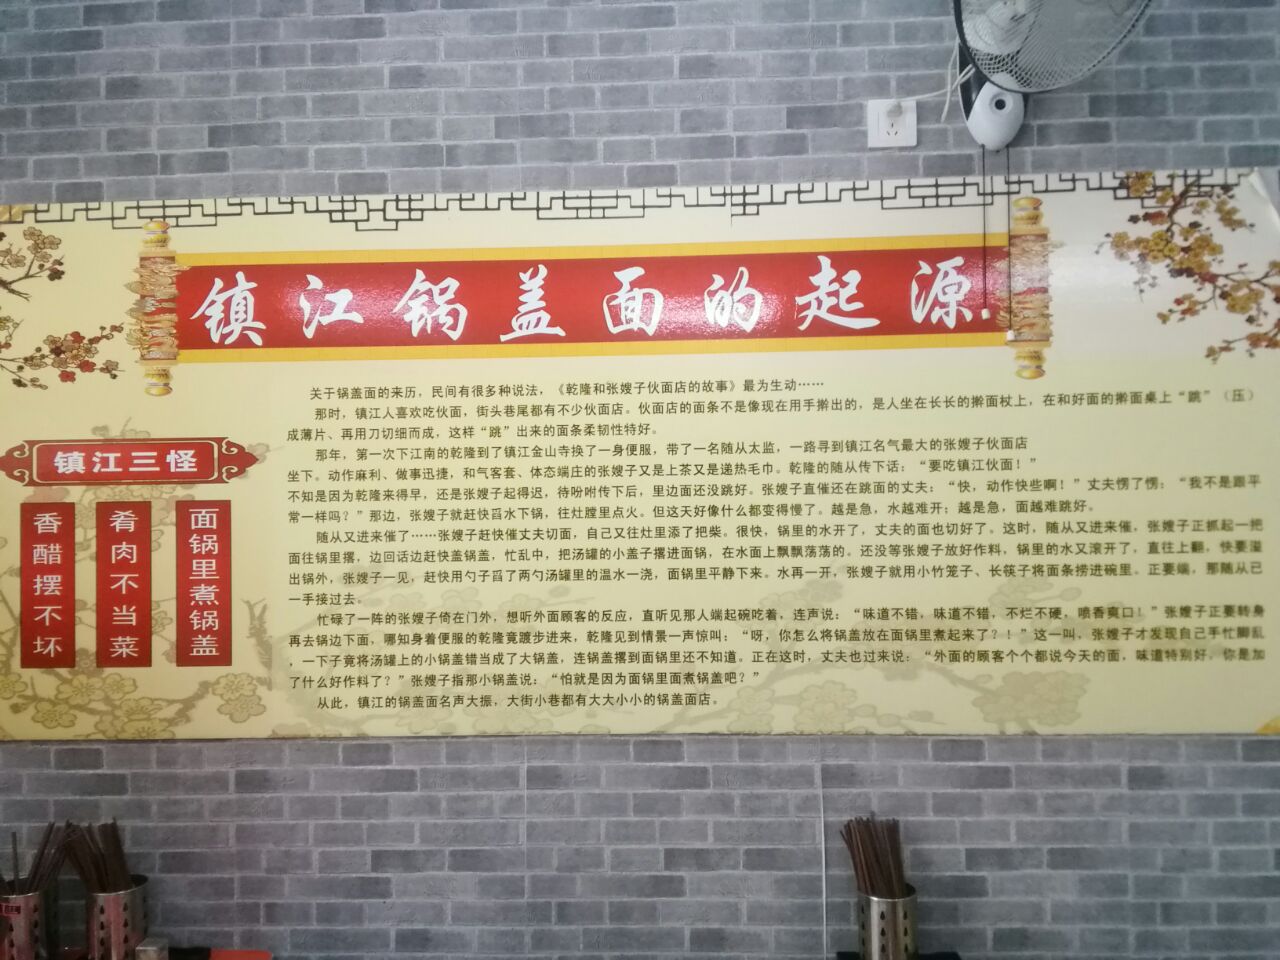 镇江锅盖面的起源
关于锅盖面的来历，民间有很多种说法，《乾隆和张嫂子伙面店的故事》最为生动……
那时，镇江人喜欢吃伙面，街头巷尾都有不少伙面店。伙面店的面条不是像现在用手擀出的，是人坐在长长的擀面杖上，在和好面的擀面桌上“跳”（压）
成薄片、再用刀切细而成，这样“跳”出来的面条柔韧性特好。
那年，第一次下江南的乾隆到了镇江金山寺换了一身便服，带了一名随从太监，一路寻到镇江名气最大的张嫂子伙面店
坐下。动作麻利、做事迅捷，和气客套、体态端庄的张嫂子又是上茶又是递热毛巾。乾隆的随从传下话：“要吃镇江伙面！”
不知是因为乾隆来得早，还是张嫂子起得迟，待吩咐传下后，里边面还没跳好。张嫂子直催还在跳面的丈夫：“快，动作快些啊！”丈夫愣了愣：“我不是跟平
常一样吗？”那边，张嫂子就赶快舀水下锅，往灶膛里点火。但这天好像什么都变得慢了。越是急，水越难开；越是急，面越难跳好。
随从又进来催了……张嫂子赶快催丈夫切面，自己又往灶里添了把柴。很快，锅里的水开了，丈夫的面也切好了。这时，随从又进来催，张嫂子正抓起一把
面往锅里撂，边回话边赶快盖锅盖，忙乱中，把汤罐的小盖子撂进面锅，在水面上飘飘荡荡的。还没等张嫂子放好作料，锅里的水又滚开了，直往上翻，快要溢
出锅外，张嫂子一见，赶快用勺子舀了两勺汤罐里的温水一浇，面锅里平静下来。水再一开，张嫂子就用小竹笼子、长筷子将面条捞进碗里。正要端，那随从已
一手接过去。
忙碌了一阵的张嫂子倚在门外，想听外面顾客的反应，直听见那人端起碗吃着，连声说：“味道不错，味道不错，不烂不硬，喷香爽口！”张嫂子正要转身
再去锅边下面，哪知身着便服的乾隆竟踱步进来，乾隆见到情景一声惊叫：“呀，你怎么将锅盖放在面锅里煮起来了？！”这一叫，张嫂子才发现自己手忙脚乱
，一下子竟将汤罐上的小锅盖错当成了大锅盖，连锅盖撂到面锅里还不知道。正在这时，丈夫也过来说：“外面的顾客个个都说今天的面，味道特别好，你是加
了什么好作料了？”张嫂子指那小锅盖说：“怕就是因为面锅里面煮锅盖吧？”
从此，镇江的锅盖面名声大振，大街小巷都有大大小小的锅盖面店。
镇江三怪
香醋摆不坏
肴肉不当菜
面锅里煮锅盖